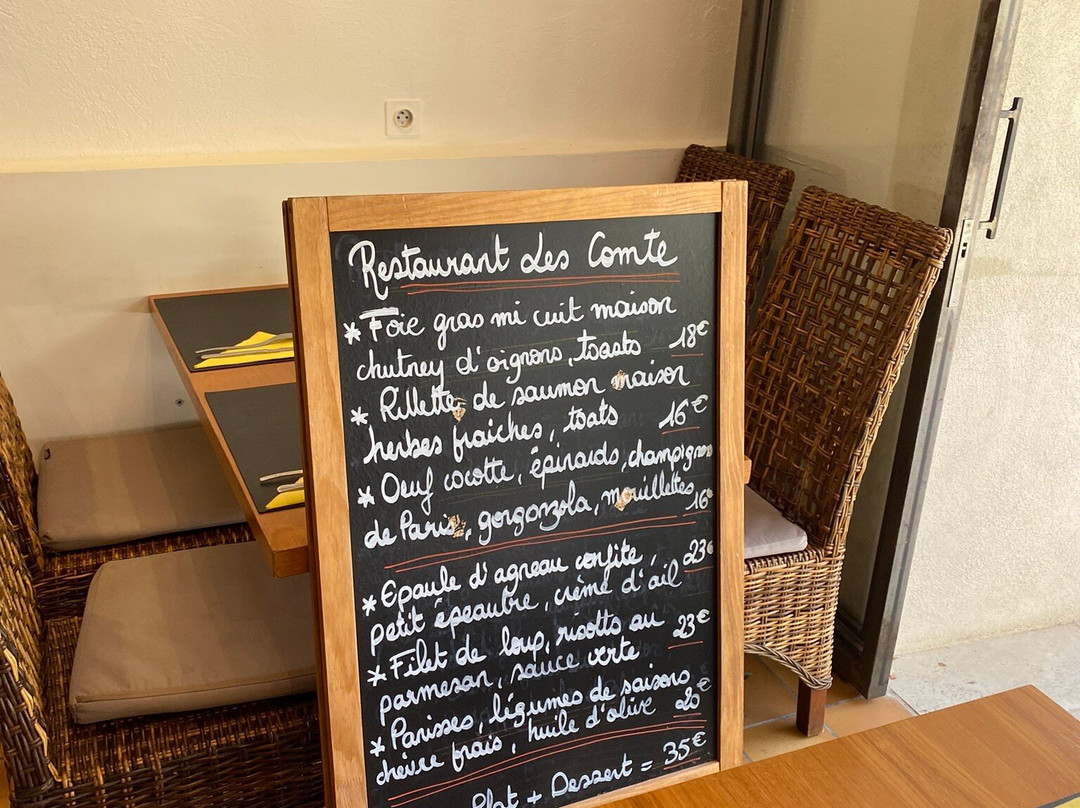 Restaurant Les Comte
* Foie gras mi cuit maison
chutney d'oignons, toasts 18€
* Rillettes de saumon maison
herbes fraiches, toats 16€
* Oeuf cocotte, épinards, champignons
de Paris, gorgonzola, mouillettes 16€
* Epaule d'agneau confite, 23€
petit épeautre, crème d'ail
* Filet de loup, risotto au 23€
parmesan, sauce verte
* Panisses, légumes de saisons
chèvre frais, huile d'olive 20€
Plat + Dessert = 35€